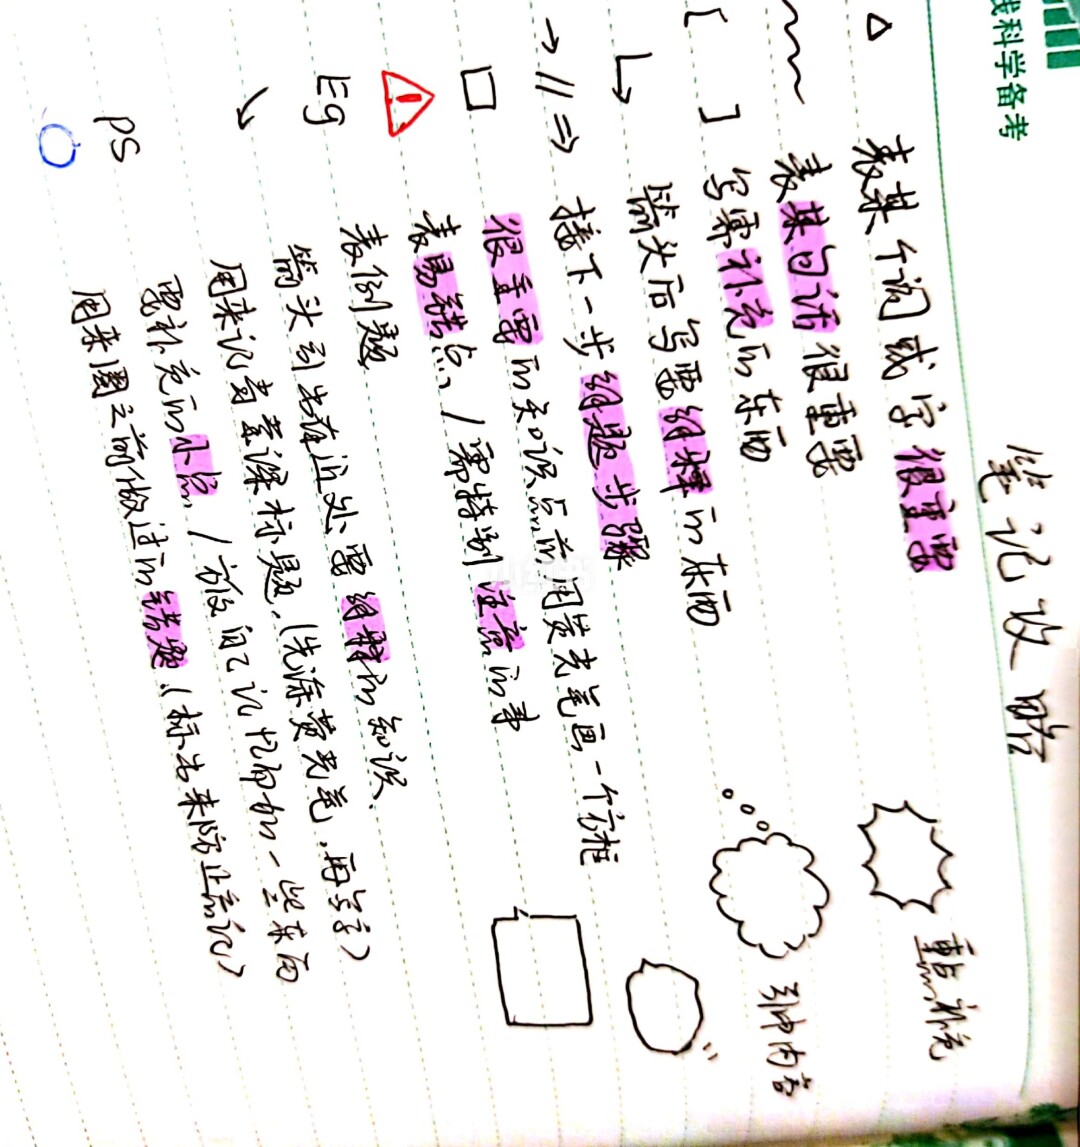 线科学备考
笔记攻略
△ 表某个词或字很重要
～～ 表某句话很重要
[ ] 写需补充的东西
↳ 箭头后写要解释的东西
→ // ⇒ 接下一步 解题步骤
□ 很重要的知识点前用荧光笔画一个方框
⚠ 表易错点 / 需特别注意的事
Eg 表例题
↘ 箭头引出在近处需解释的知识.
用来记高亮标题.(先涂荧光笔,再写字)
ps 需补充的小点 / 方便自己记忆而加一些东西
○ 用来圈之前做过的错题.(标出来防止忘记)
重点补充
引申内容